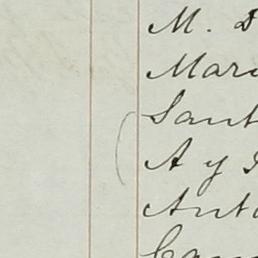 M. D
Mari
Sant
A y J
Anto
Cam